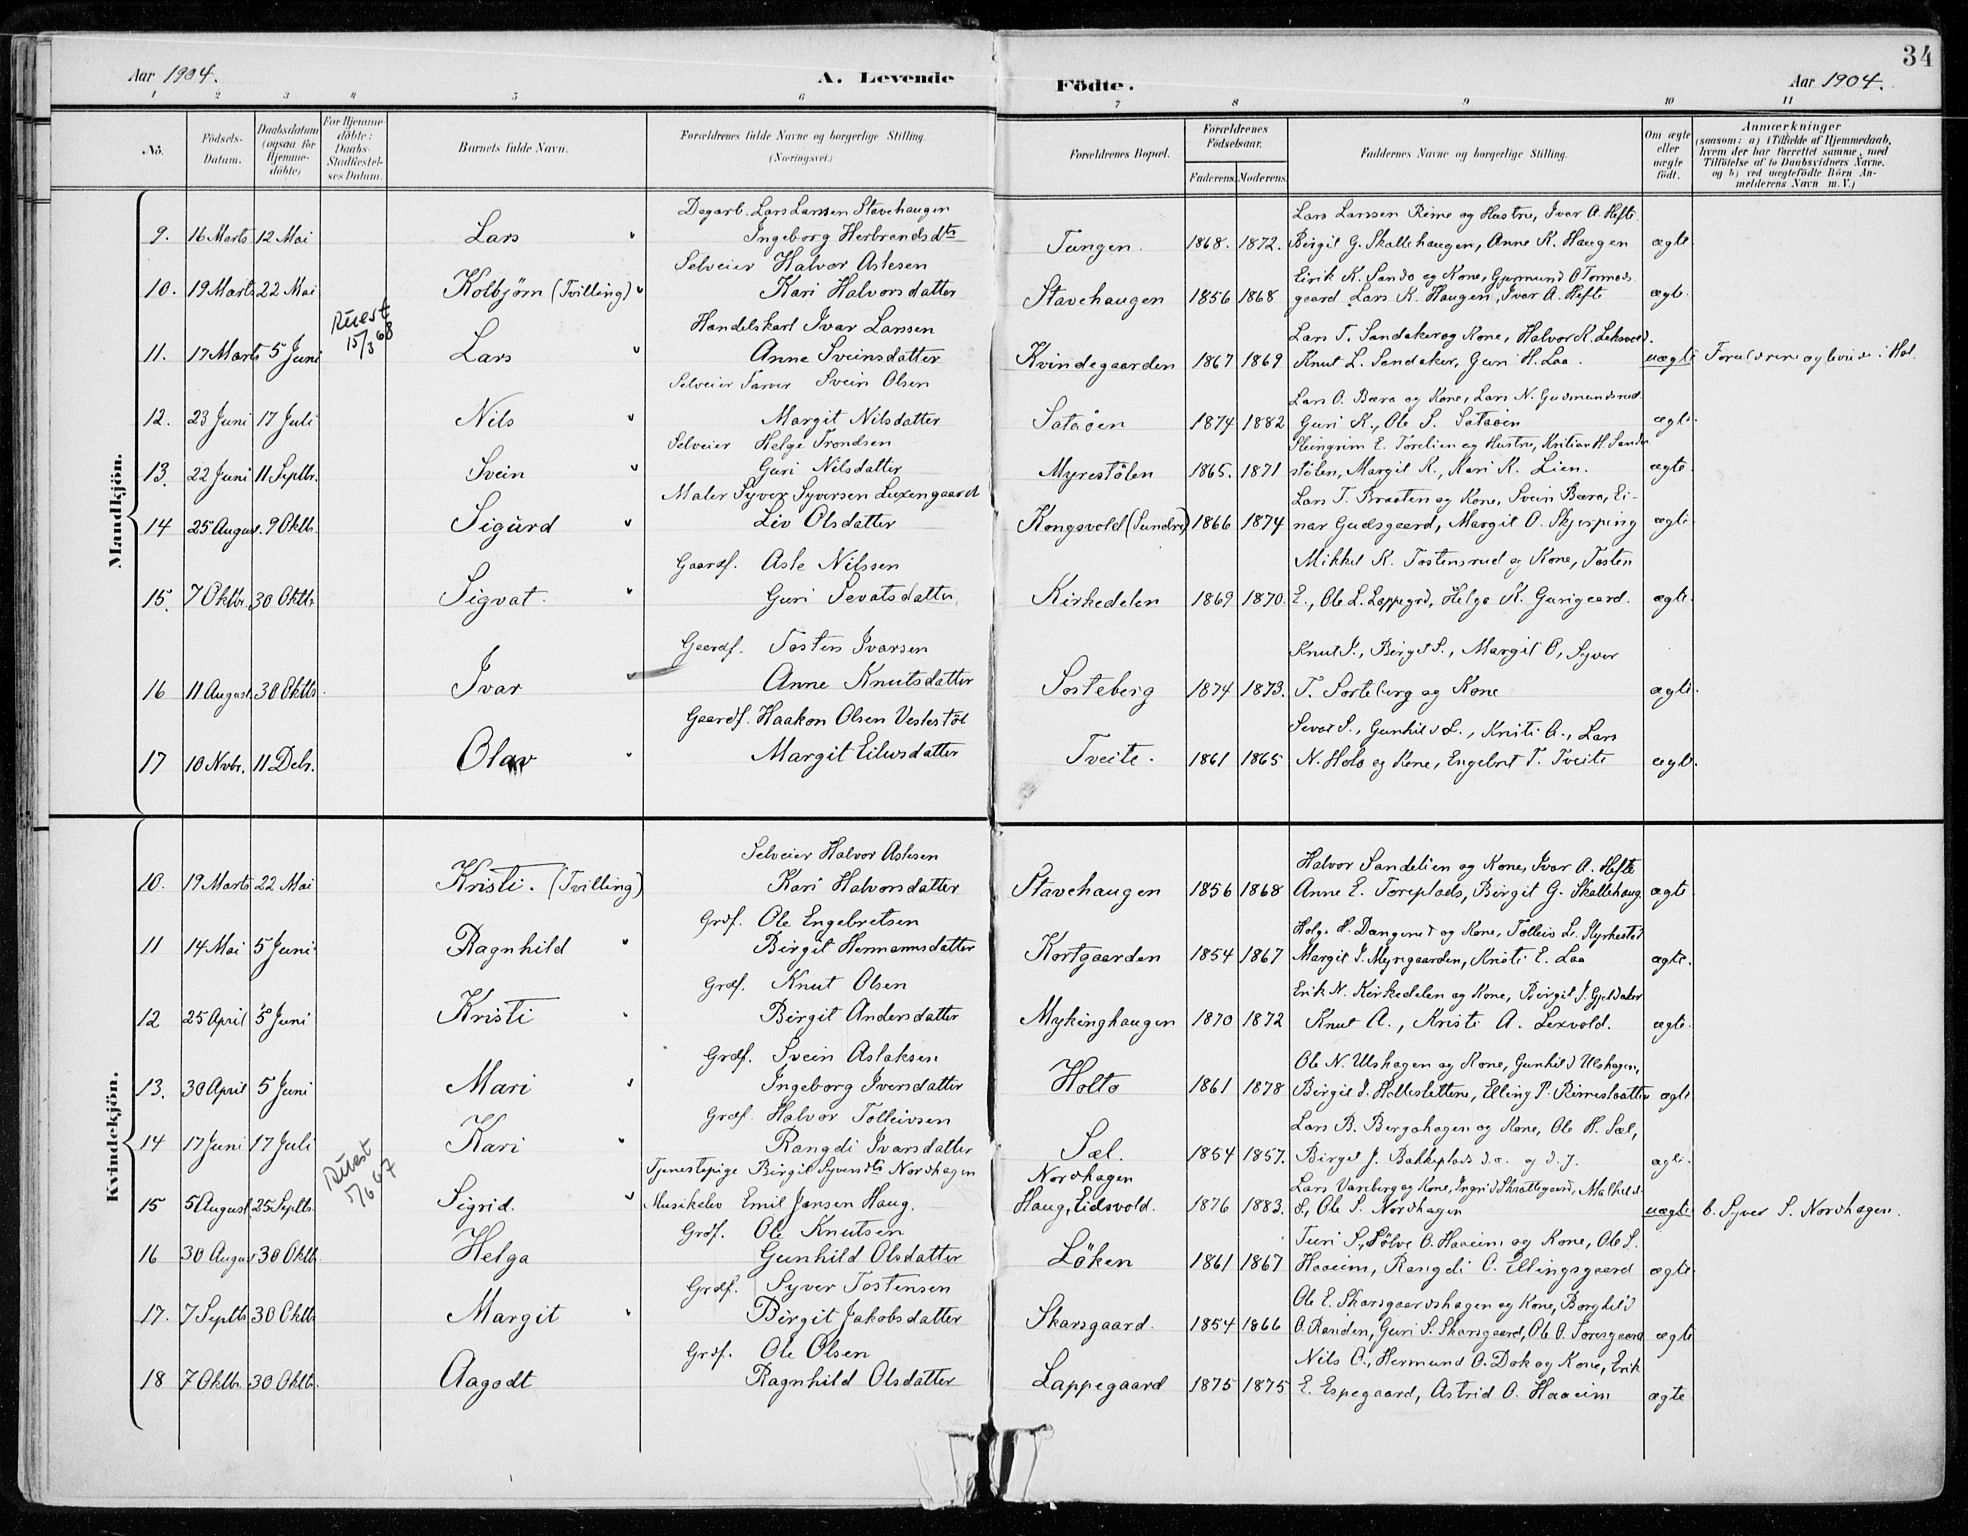 34
Aar 1904. A. Levende Födte. Aar 1904.
1 2 3 4 5 6 7 8 9 10 11
No. Födsels-Datum. Daabsdatum (ogsaa for Hjemmedöbte) For Hjemmedöbte: Daabs-Stadfæstelses Datum. Barnets fulde Navn. Forældrenes fulde Navne og borgerlige Stilling. (Næringsvei.) Forældrenes Bopæl. Forældrenes Födselsaar. Faderens. Moderens. Faddernes Navne og borgerlige Stilling. Om ægte eller uægte födt. Anmærkninger (saasom: a) i Tilfælde af Hjemmedaab, hvem der har forrettet samme, med Tilföielse af to Daabsvidners Navne, og b) ved uægtefödte Börn Anmelderens Navn m. V.)
Mandkjön.
Dagarb. Lars Larssen Stavehaugen Lars Larssen Reime og Hustru, Ivar A. Hefte.
9. 16 Marts 12 Mai Lars Ingeborg Herbrandsdtr Tungen. 1868. 1872. Birgit G. Skallehaugen, Anne K. Haugen ægte.
Selveier Halvor Aslesen Eirik K. Sando og Kone, Gjermund O Tormods-
10. 19 Marts 22 Mai Kolbjörn (Tvilling) Kari Halvorsdatter Stavehaugen 1856 1868 gaard Lars K. Haugen, Ivar A. Hefte ægte.
Handelskarl Ivar Larssen Lars T. Sandaker og Kone, Halvor K.
11. 17 Marts 5 Juni 15/3 68 Lars Anne Sveinsdatter Kvindegaarden 1867 1869 Knut L. Sandaker, Guri H. Laa. uægte Forældrene i Hol.
Selveier Farver Svein Olsen Lars O. Bæra og Kone, Lars N. Gudmundsrud
12. 23 Juni 17 Juli Nils Margit Nilsdatter Sataöen 1874 1882 Guri K., Ole S. Sataöen ægte.
Selveier Helge Trondsen Steingrim E. Torelien og Hustru, Kristian H. Sando-
13. 22 Juni 11 Septbr. Svein Guri Nilsdatter Myrestölen 1865. 1871 stölen, Margit K., Kari K. Lien. ægte.
Maler Syver Syversen Luxengaard Lars T. Braaten og Kone, Svein Bæra, Ei-
14 25 August. 9 Oktb. Sigurd Liv Olsdatter Kongsvold (Sundre) 1866 1874 nar Gudsgaard, Margit O. Skjerping ægte.
Gaardf. Asle Nilssen Mikkel K. Tostensrud og Kone, Tosten
15. 7 Oktbr. 30 Oktbr Sigvat. Guri Sevatsdatter. Kirkedelen 1869 1870. E., Ole L. Lappegrd, Helge K. Gurigaard. ægte.
Gaardf. Tosten Ivarsen Knut S., Birgit S., Margit O, Syver
16 11 August. 30 Oktbr. Ivar Anne Knutsdatter Sorteberg 1874 1873. T. Sorteberg og Kone ægte.
Gaardf. Haakon Olsen Veslestöl Sevat S., Gunhild L., Kristi A., Lars
17 10 Nvbr. 11 Debr. Olav Margit Eilivsdatter Tveite. 1861 1865 N. Holo og Kone, Engebret T. Tveite ægte.
Kvindekjön.
Selveier Halvor Aslesen Halvor Sandelien og Kone, Ivar A. Hefte
10. 19 Marts 22 Mai Kristi. (Tvilling) Kari Halvorsdatter Stavehaugen 1856 1868 Anne E. Toreplads, Birgit G. Skallehaug. ægte.
Grdf. Ole Engebretsen Helge H. og Kone, Tolleiv L. Styrkestöl
11 14 Mai 5 Juni Ragnhild Birgit Hermannsdatter Kortgaarden 1854 1867 Margit S. Myregaarden, Kristi E. Laa ægte.
Grdf. Knut Olsen Erik N. Kirkedelen og Kone, Birgit J. Gjeldaker
12 25 April 5 Juni Kristi Birgit Andersdatter Mykinghaugen 1870 1872 Knut A., Kristi A. Lexvold. ægte.
Grdf. Svein Aslaksen Ole N. Ulshagen og Kone, Gunhild Ulshagen,
13. 30 April 5 Juni Mari Ingeborg Iversdatter Holto 1861 1878 Birgit I. Elling P. ægte
Grdf. Halvor Tolleivsen Lars B. Bergahagen og Kone, Ole H. Sæl,
14 17 Juni 17 Juli Kari Rangdi Ivarsdatter Sæl. 1854 1857. Birgit J. Bakkeplads ægte.
Tjenestepige Birgit Syversdtr Nordhagen Nordhagen Lars Vandberg og Kone, Ingrid Skrattegaard, Mathild
15 5 August. 25 Septbr. 5/6 67 Sigrid. Musikelev Emil Jansen Haug. Haug, Eidsvold. 1876 1883. S., Ole S. Nordhagen uægte b. Syver S. Nordhagen.
Grdf. Ole Knutsen Turi S., Sölve O. Haaeim og Kone, Ole S.
16 30 August 30 Oktb. Helga Gunhild Olsdatter Löken 1861 1867 Haaeim, Rangdi O. Ellingsgaard ægte.
Grdf. Syver Tostensen Ole E. Skarsgaardshagen og Kone, Borghild
17. 7 Septbr 30 Oktbr Margit Birgit Jakobsdatter Skarsgaard. 1854 1866 O. Randen, Guri S. Skarsgaard, Ole O. Toresgaard ægte
Grdf. Ole Olsen Nils O., Hermund O. Dok og Kone, Erik
18 7 Oktbr. 30 Oktbr. Aagodt Ragnhild Olsdatter Lappegaard 1875 1875 E. Espegaard, Astrid O. Haaeim ægte